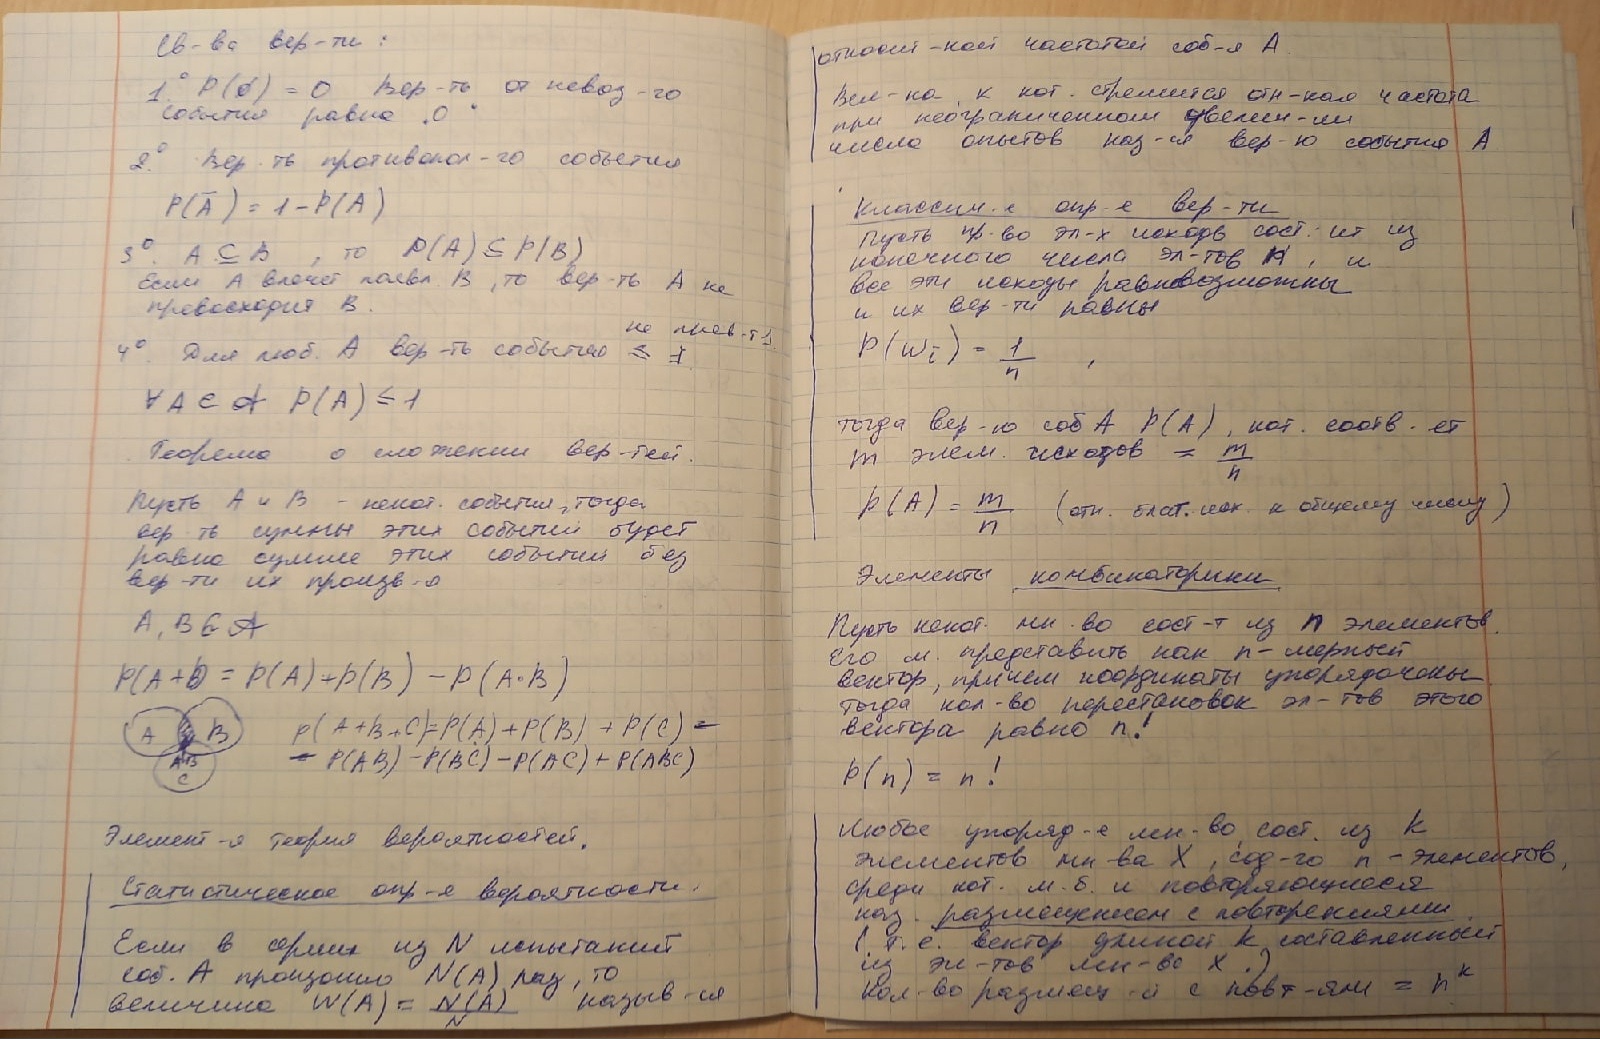 Св-ва вер-ти:
1.° P(∅) = 0 Вер-ть от невоз-го
события равна 0
2.° Вер-ть противопол-го события
P(Ā) = 1 - P(A)
3°. A ⊆ B, то P(A) ≤ P(B)
Если A влечёт появл. B, то вер-ть A не
превосходит B.
не прев-т 1
4°. Для люб. A вер-ть события ≤ 1
∀ A ∈ 𝒜 P(A) ≤ 1
Теорема о сложении вер-тей.
Пусть A и B - некот. события, тогда
вер-ть суммы этих событий будет
равна сумме этих событий без
вер-ти их произв-я
A, B ∈ 𝒜
P(A+B) = P(A) + P(B) - P(A·B)
A B
AB
C
P(A+B+C) = P(A) + P(B) + P(C) -
- P(AB) - P(BC) - P(AC) + P(ABC)
Элемент-я теория вероятностей.
Статистическое опр-е вероятности.
Если в серии из N испытаний
соб. A произошло N(A) раз, то
величина W(A) = N(A)/N назыв-ся
относит-ной частотой соб-я A.
Вел-на, к кот. стремится отн-ная частота
при неограниченном увелич-ии
числа опытов наз-ся вер-ю события A
Классич-е опр-е вер-ти
Пусть пр-во эл-х исходв сост-ит из
конечного числа эл-тов, и
все эти исходы равновозможны
и их вер-ти равны
P(ω_i) = 1/n,
тогда вер-ю соб A P(A), кот. соотв-ет
m элем. исходов = m/n
P(A) = m/n (отн. благ. исх. к общему числу)
Элементы комбинаторики
Пусть некот. мн-во сост-т из n элементов.
Его м. представить как n-мерный
вектор, причём координаты упорядочены
тогда кол-во перестановок эл-тов этого
вектора равно n!
P(n) = n!
Любое упоряд-е мн-во, сост. из k
элементов мн-ва X, сод-го n-элементов,
среди кот. м.б. и повторяющиеся
наз. размещением с повторениями.
(т.е. вектор длиной k составленный
из эл-тов мн-во X.)
Кол-во размещ-й с повт-ями = n^k